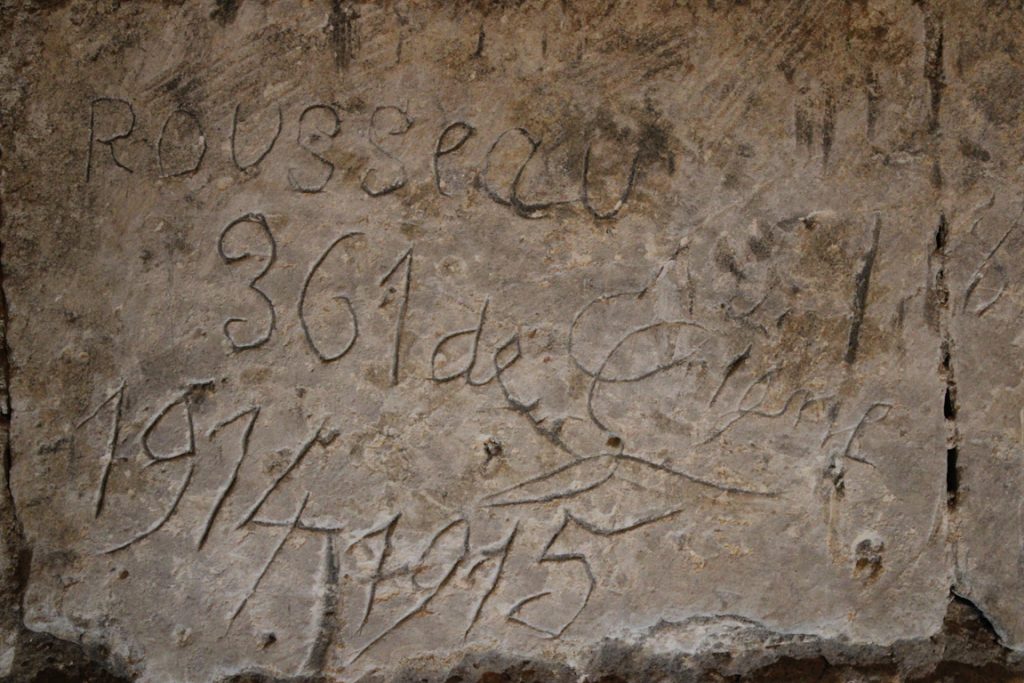 ROUSSeau
361 de Ligne
1914 1915